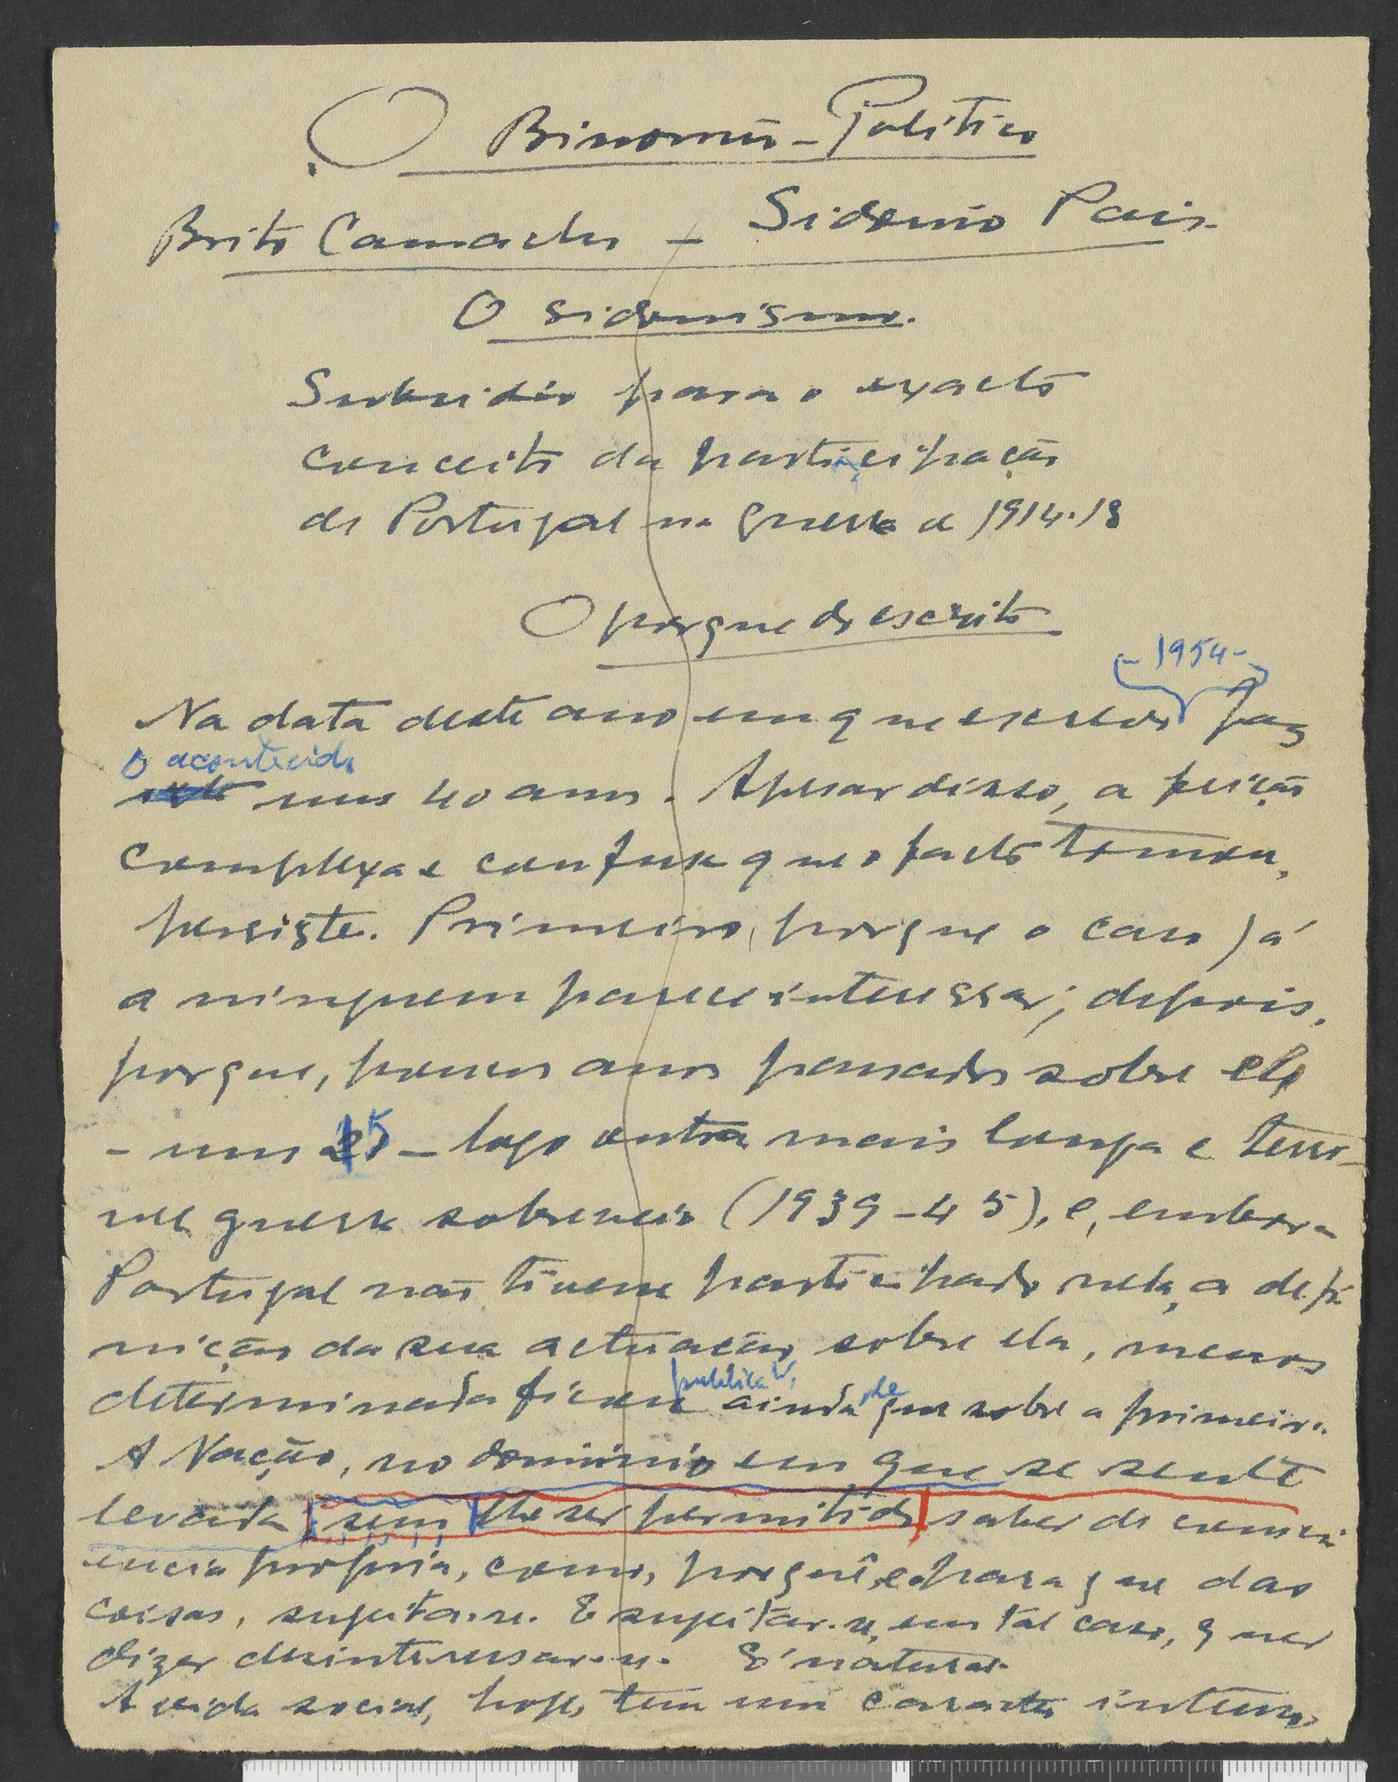 O Binomio-Politico
Brito Camacho - Sidonio Pais.
O sidonismo.
Subsidio para o exacto
conceito da participação
de Portugal na guerra de 1914-18
O porque do escrito
- 1954 -
Na data deste ano em que escrevo faz
o acontecido
uns 40 anos. Apesar disso, a feição
complexa e confusa que o facto tomou,
persiste. Primeiro, porque o caso já
a ninguem parece interessar; depois,
porque, poucos anos passados sobre ele
- uns 25 - logo outra mais longa e terri-
vel guerra sobreveio (1939-45), e, embora
Portugal não tivesse participado nela, a defi-
nição da sua actuação sobre ela, menos
determinada ficou ainda que sobre a primeira.
A Nação, no dominio em que se sente
levada sem lhe ser permitido saber de consci-
encia propria, como, porquê e para que das
coisas, sujeita-se. E sujeitar-se, em tal caso, quer
dizer desinteressar-se. É natural.
A vida social, hoje, tem um caracter intenso,